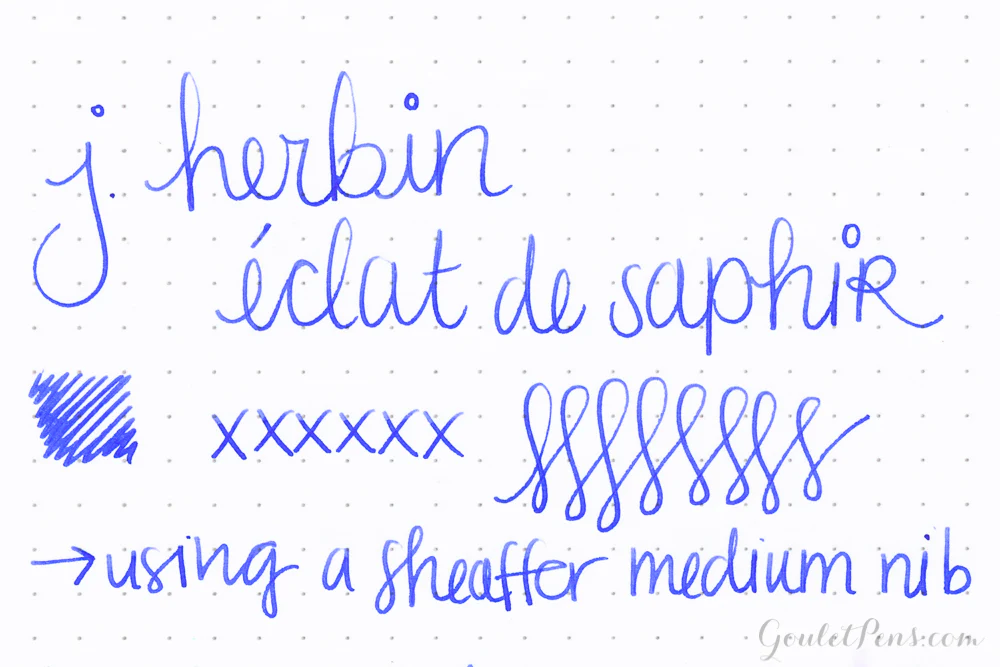 j. herbin
éclat de saphir
xxxxxx
→ using a sheaffer medium nib
GouletPens.com